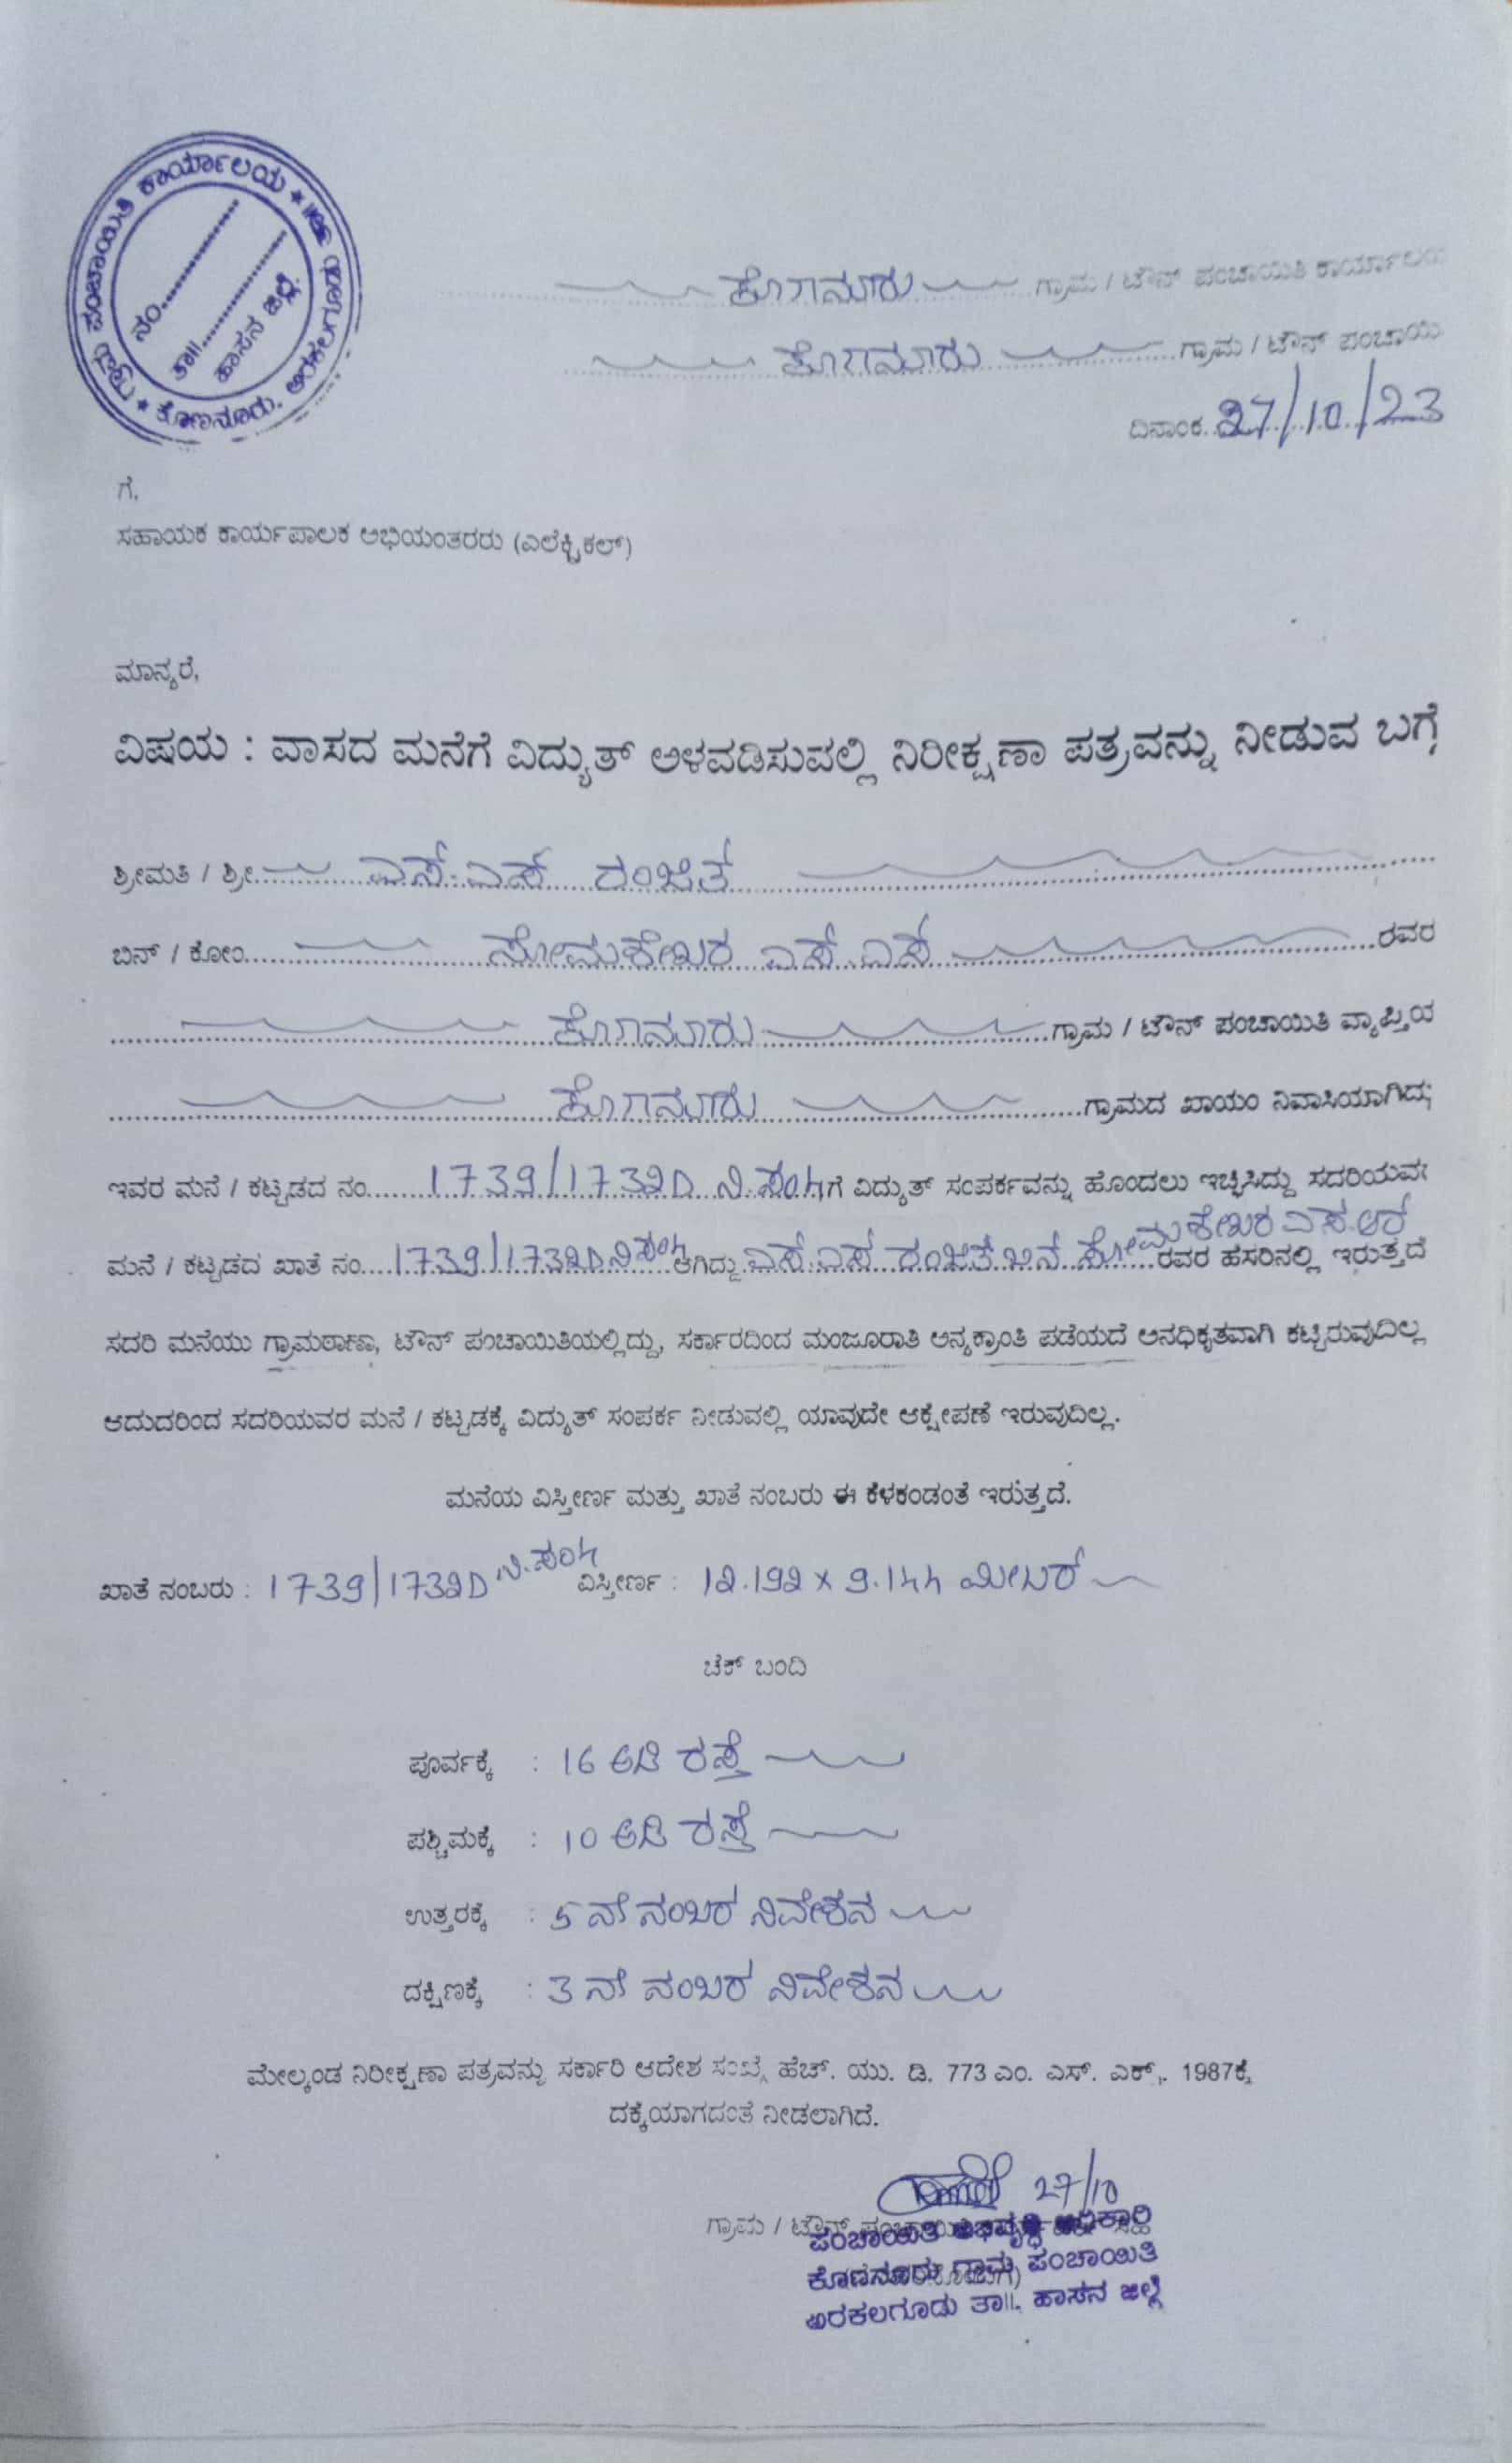 ಗ್ರಾಮ ಪಂಚಾಯಿತಿ ಕಾರ್ಯಾಲಯ * * ಕೊಣನೂರು. ಅರಕಲಗೂಡು ತಾ॥
ನಂ..............
ತಾ॥..............
ಹಾಸನ ಜಿಲ್ಲೆ.
ಕೊಣನೂರು ಗ್ರಾಮ / ಟೌನ್ ಪಂಚಾಯಿತಿ ಕಾರ್ಯಾಲಯ
ಕೊಣನೂರು ಗ್ರಾಮ / ಟೌನ್ ಪಂಚಾಯಿ
ದಿನಾಂಕ. 27/10/23
ಗೆ,
ಸಹಾಯಕ ಕಾರ್ಯಪಾಲಕ ಅಭಿಯಂತರರು (ಎಲೆಕ್ಟ್ರಿಕಲ್)
ಮಾನ್ಯರೆ,
ವಿಷಯ : ವಾಸದ ಮನೆಗೆ ವಿದ್ಯುತ್ ಅಳವಡಿಸುವಲ್ಲಿ ನಿರೀಕ್ಷಣಾ ಪತ್ರವನ್ನು ನೀಡುವ ಬಗ್ಗೆ
ಶ್ರೀಮತಿ / ಶ್ರೀ ಎಸ್.ಎಸ್ ರಂಜಿತ್
ಬಿನ್ / ಕೋಂ ಸೋಮಶೇಖರ ಎಸ್.ಎಸ್ ರವರ
ಕೊಣನೂರು ಗ್ರಾಮ / ಟೌನ್ ಪಂಚಾಯಿತಿ ವ್ಯಾಪ್ತಿಯ
ಕೊಣನೂರು ಗ್ರಾಮದ ಖಾಯಂ ನಿವಾಸಿಯಾಗಿದ್ದು
ಇವರ ಮನೆ / ಕಟ್ಟಡದ ನಂ. 1739/1732D ನಿ.ಸಂ೪ಗೆ ವಿದ್ಯುತ್ ಸಂಪರ್ಕವನ್ನು ಹೊಂದಲು ಇಚ್ಛಿಸಿದ್ದು ಸದರಿಯವರ
ಮನೆ / ಕಟ್ಟಡದ ಖಾತೆ ನಂ. 1739/1732D ನಿ ಸಂ೪ ಆಗಿದ್ದು ಎಸ್.ಎಸ್ ರಂಜಿತ್ ಬಿನ್ ಸೋಮಶೇಖರ ಎಸ್.ಆರ್ ರವರ ಹೆಸರಿನಲ್ಲಿ ಇರುತ್ತದೆ
ಸದರಿ ಮನೆಯು ಗ್ರಾಮಠಾಣಾ, ಟೌನ್ ಪಂಚಾಯಿತಿಯಲ್ಲಿದ್ದು, ಸರ್ಕಾರದಿಂದ ಮಂಜೂರಾತಿ ಅನ್ಯಕ್ರಾಂತಿ ಪಡೆಯದೆ ಅನಧಿಕೃತವಾಗಿ ಕಟ್ಟಿರುವುದಿಲ್ಲ
ಆದುದರಿಂದ ಸದರಿಯವರ ಮನೆ / ಕಟ್ಟಡಕ್ಕೆ ವಿದ್ಯುತ್ ಸಂಪರ್ಕ ನೀಡುವಲ್ಲಿ ಯಾವುದೇ ಆಕ್ಷೇಪಣೆ ಇರುವುದಿಲ್ಲ.
ಮನೆಯ ವಿಸ್ತೀರ್ಣ ಮತ್ತು ಖಾತೆ ನಂಬರು ಈ ಕೆಳಕಂಡಂತೆ ಇರುತ್ತದೆ.
ಖಾತೆ ನಂಬರು : 1739/1732D ನಿ.ಸಂ೪ ವಿಸ್ತೀರ್ಣ : 12.192 x 9.144 ಮೀಟರ್
ಚೆಕ್ ಬಂದಿ
ಪೂರ್ವಕ್ಕೆ : 16 ಅಡಿ ರಸ್ತೆ
ಪಶ್ಚಿಮಕ್ಕೆ : 10 ಅಡಿ ರಸ್ತೆ
ಉತ್ತರಕ್ಕೆ : 5 ನೇ ನಂಬರ್ ನಿವೇಶನ
ದಕ್ಷಿಣಕ್ಕೆ : 3 ನೇ ನಂಬರ್ ನಿವೇಶನ
ಮೇಲ್ಕಂಡ ನಿರೀಕ್ಷಣಾ ಪತ್ರವನ್ನು ಸರ್ಕಾರಿ ಆದೇಶ ಸಂಖ್ಯೆ ಹೆಚ್. ಯು. ಡಿ. 773 ಎಂ. ಎಸ್. ಎಕ್ಸ್. 1987ಕ್ಕೆ
ದಕ್ಕೆಯಾಗದಂತೆ ನೀಡಲಾಗಿದೆ.
27/10
ಗ್ರಾಮ / ಟೌನ್ ಪಂಚಾಯಿತಿ
ಪಂಚಾಯಿತಿ ಅಭಿವೃದ್ಧಿ ಅಧಿಕಾರಿ
ಕೊಣನೂರು ಗ್ರಾಮ ಪಂಚಾಯಿತಿ
ಅರಕಲಗೂಡು ತಾ॥. ಹಾಸನ ಜಿಲ್ಲೆ